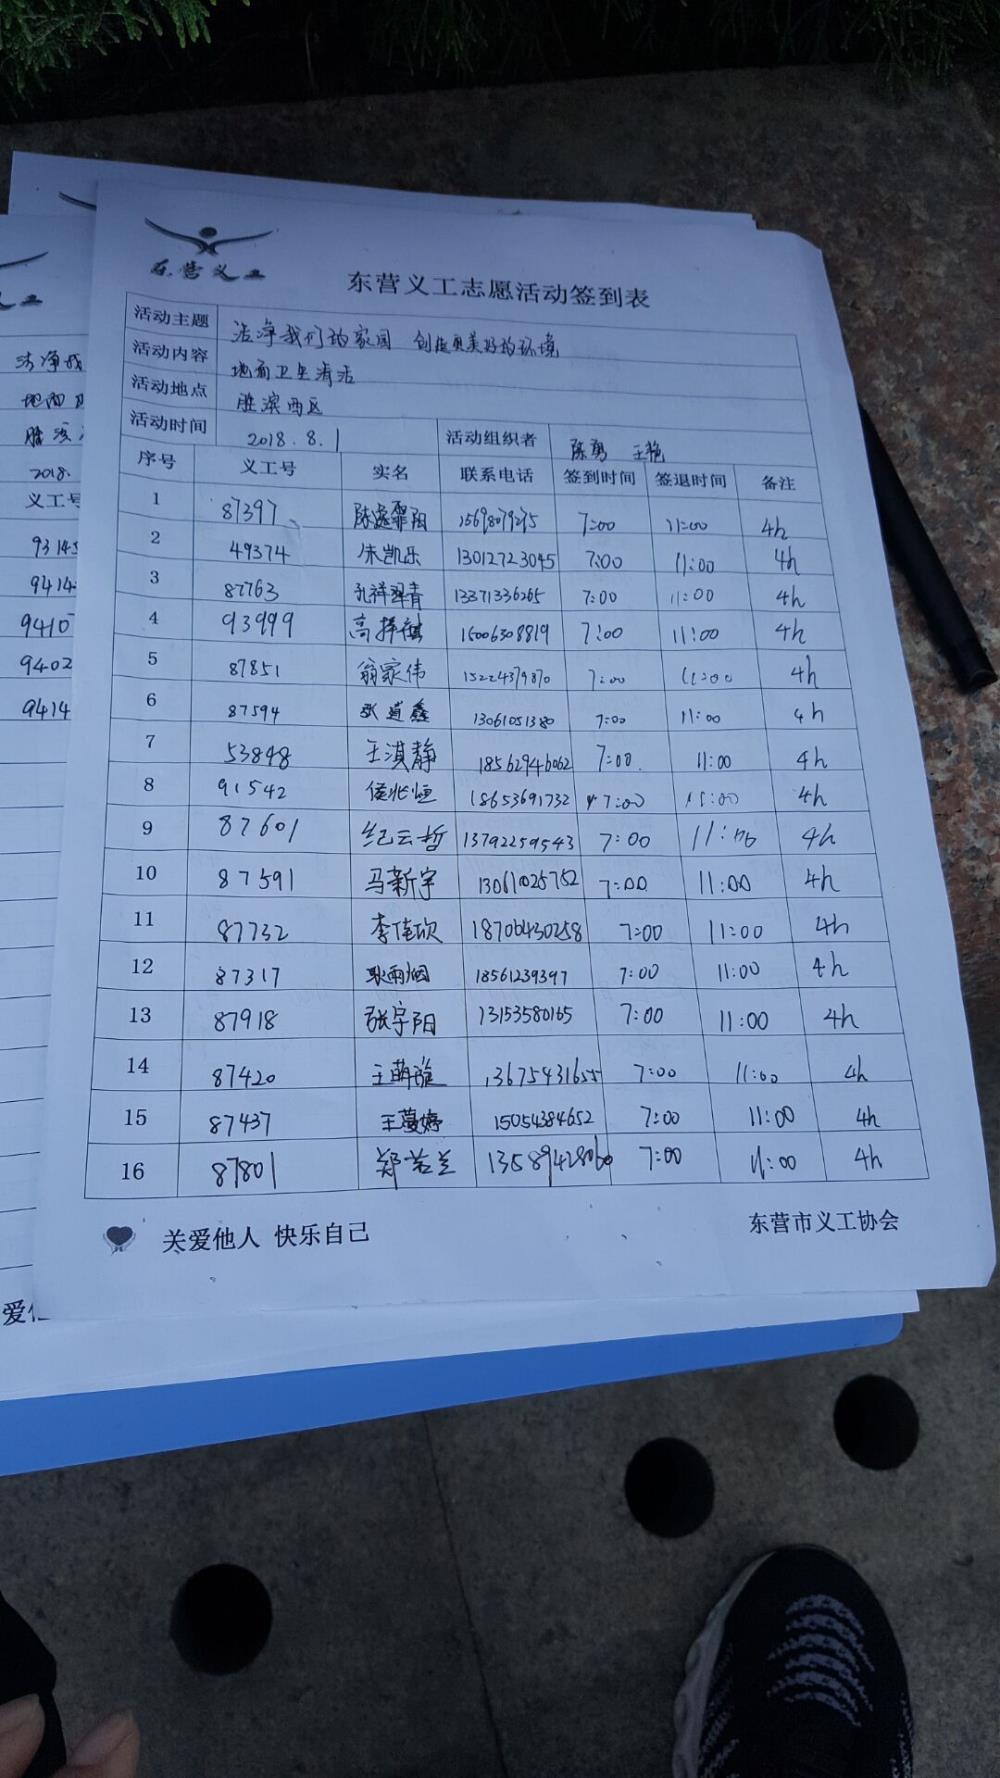 东营义工
东营义工志愿活动签到表
活动主题 洁净我们的家园 创造更美好的环境
活动内容 地面卫生清洁
活动地点 胜滨西区
活动时间 2018.8.1 活动组织者 陈勇 王艳
序号 义工号 实名 联系电话 签到时间 签退时间 备注
1 87397 7:00 11:00 4h
2 49374 朱凯乐 13012723045 7:00 11:00 4h
3 87763 孔祥翠青 13371336265 7:00 11:00 4h
4 93999 15006308819 7:00 11:00 4h
5 87851 翁家伟 15224379870 7:00 11:00 4h
6 87594 张道鑫 13061051380 7:00 11:00 4h
7 53848 王淇静 18562946062 7:00 11:00 4h
8 91542 侯兆恒 18653691732 7:00 11:00 4h
9 87601 纪云哲 13792259543 7:00 4h
10 87591 马新宇 13061025752 7:00 11:00 4h
11 87732 李佳欣 18706430258 7:00 11:00 4h
12 87317 耿雨烟 18561239397 7:00 11:00 4h
13 87918 张宇阳 13153580165 7:00 11:00 4h
14 87420 13675431655 7:00 11:00 4h
15 87437 王蔓婷 15054384652 7:00 11:00 4h
16 87801 郑若兰 7:00 11:00 4h
关爱他人 快乐自己
东营市义工协会
2018.
义工号
9314
9414
9410
9402
9414